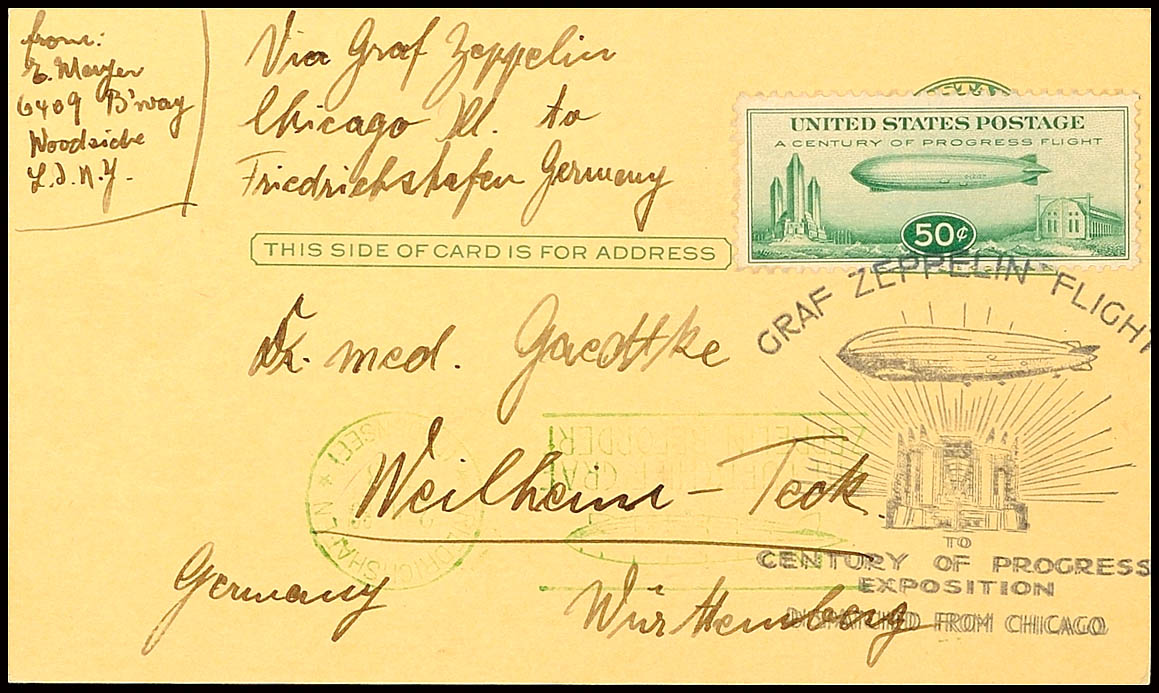 from:
E. Meyer
6409 B'way
Woodside
L.I. N.Y.
Via Graf Zeppelin
Chicago Ill. to
Friedrichshafen Germany
UNITED STATES POSTAGE
A CENTURY OF PROGRESS FLIGHT
50¢
THIS SIDE OF CARD IS FOR ADDRESS
GRAF ZEPPELIN FLIGHT
Dr. med. Gaedtke
Weilheim - Teck
TO
CENTURY OF PROGRESS
EXPOSITION
FROM CHICAGO
Germany Württemberg